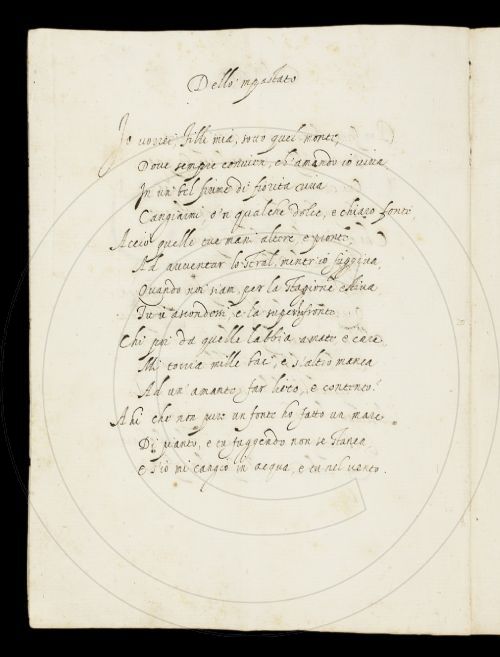 Dello
Io vorrei Filli mia, sovo quel monte,
Dove sempre convien, ch'amando io viva
In un bel fiume di fiorita riva
Cangiarmi, o'n qualche dolce, e chiaro fonte,
Acciò quelle tue mani altere, e pronte
Ad avventar lo stral, mentr'io fuggiva,
Quando noi siam, per la stagione estiva
Tu v'ascondessi, e la superba fronte
Chi poi da quelle labbia amate, e care
Mi toria mille baci, e s'altro manca
Ad un' amante far lieto, e contento?
Ahi che non pure un fonte ho fatto un mare
Di pianto, e tu fuggendo non se stanca
E s'io mi cangio in acqua, e tu nel vento.